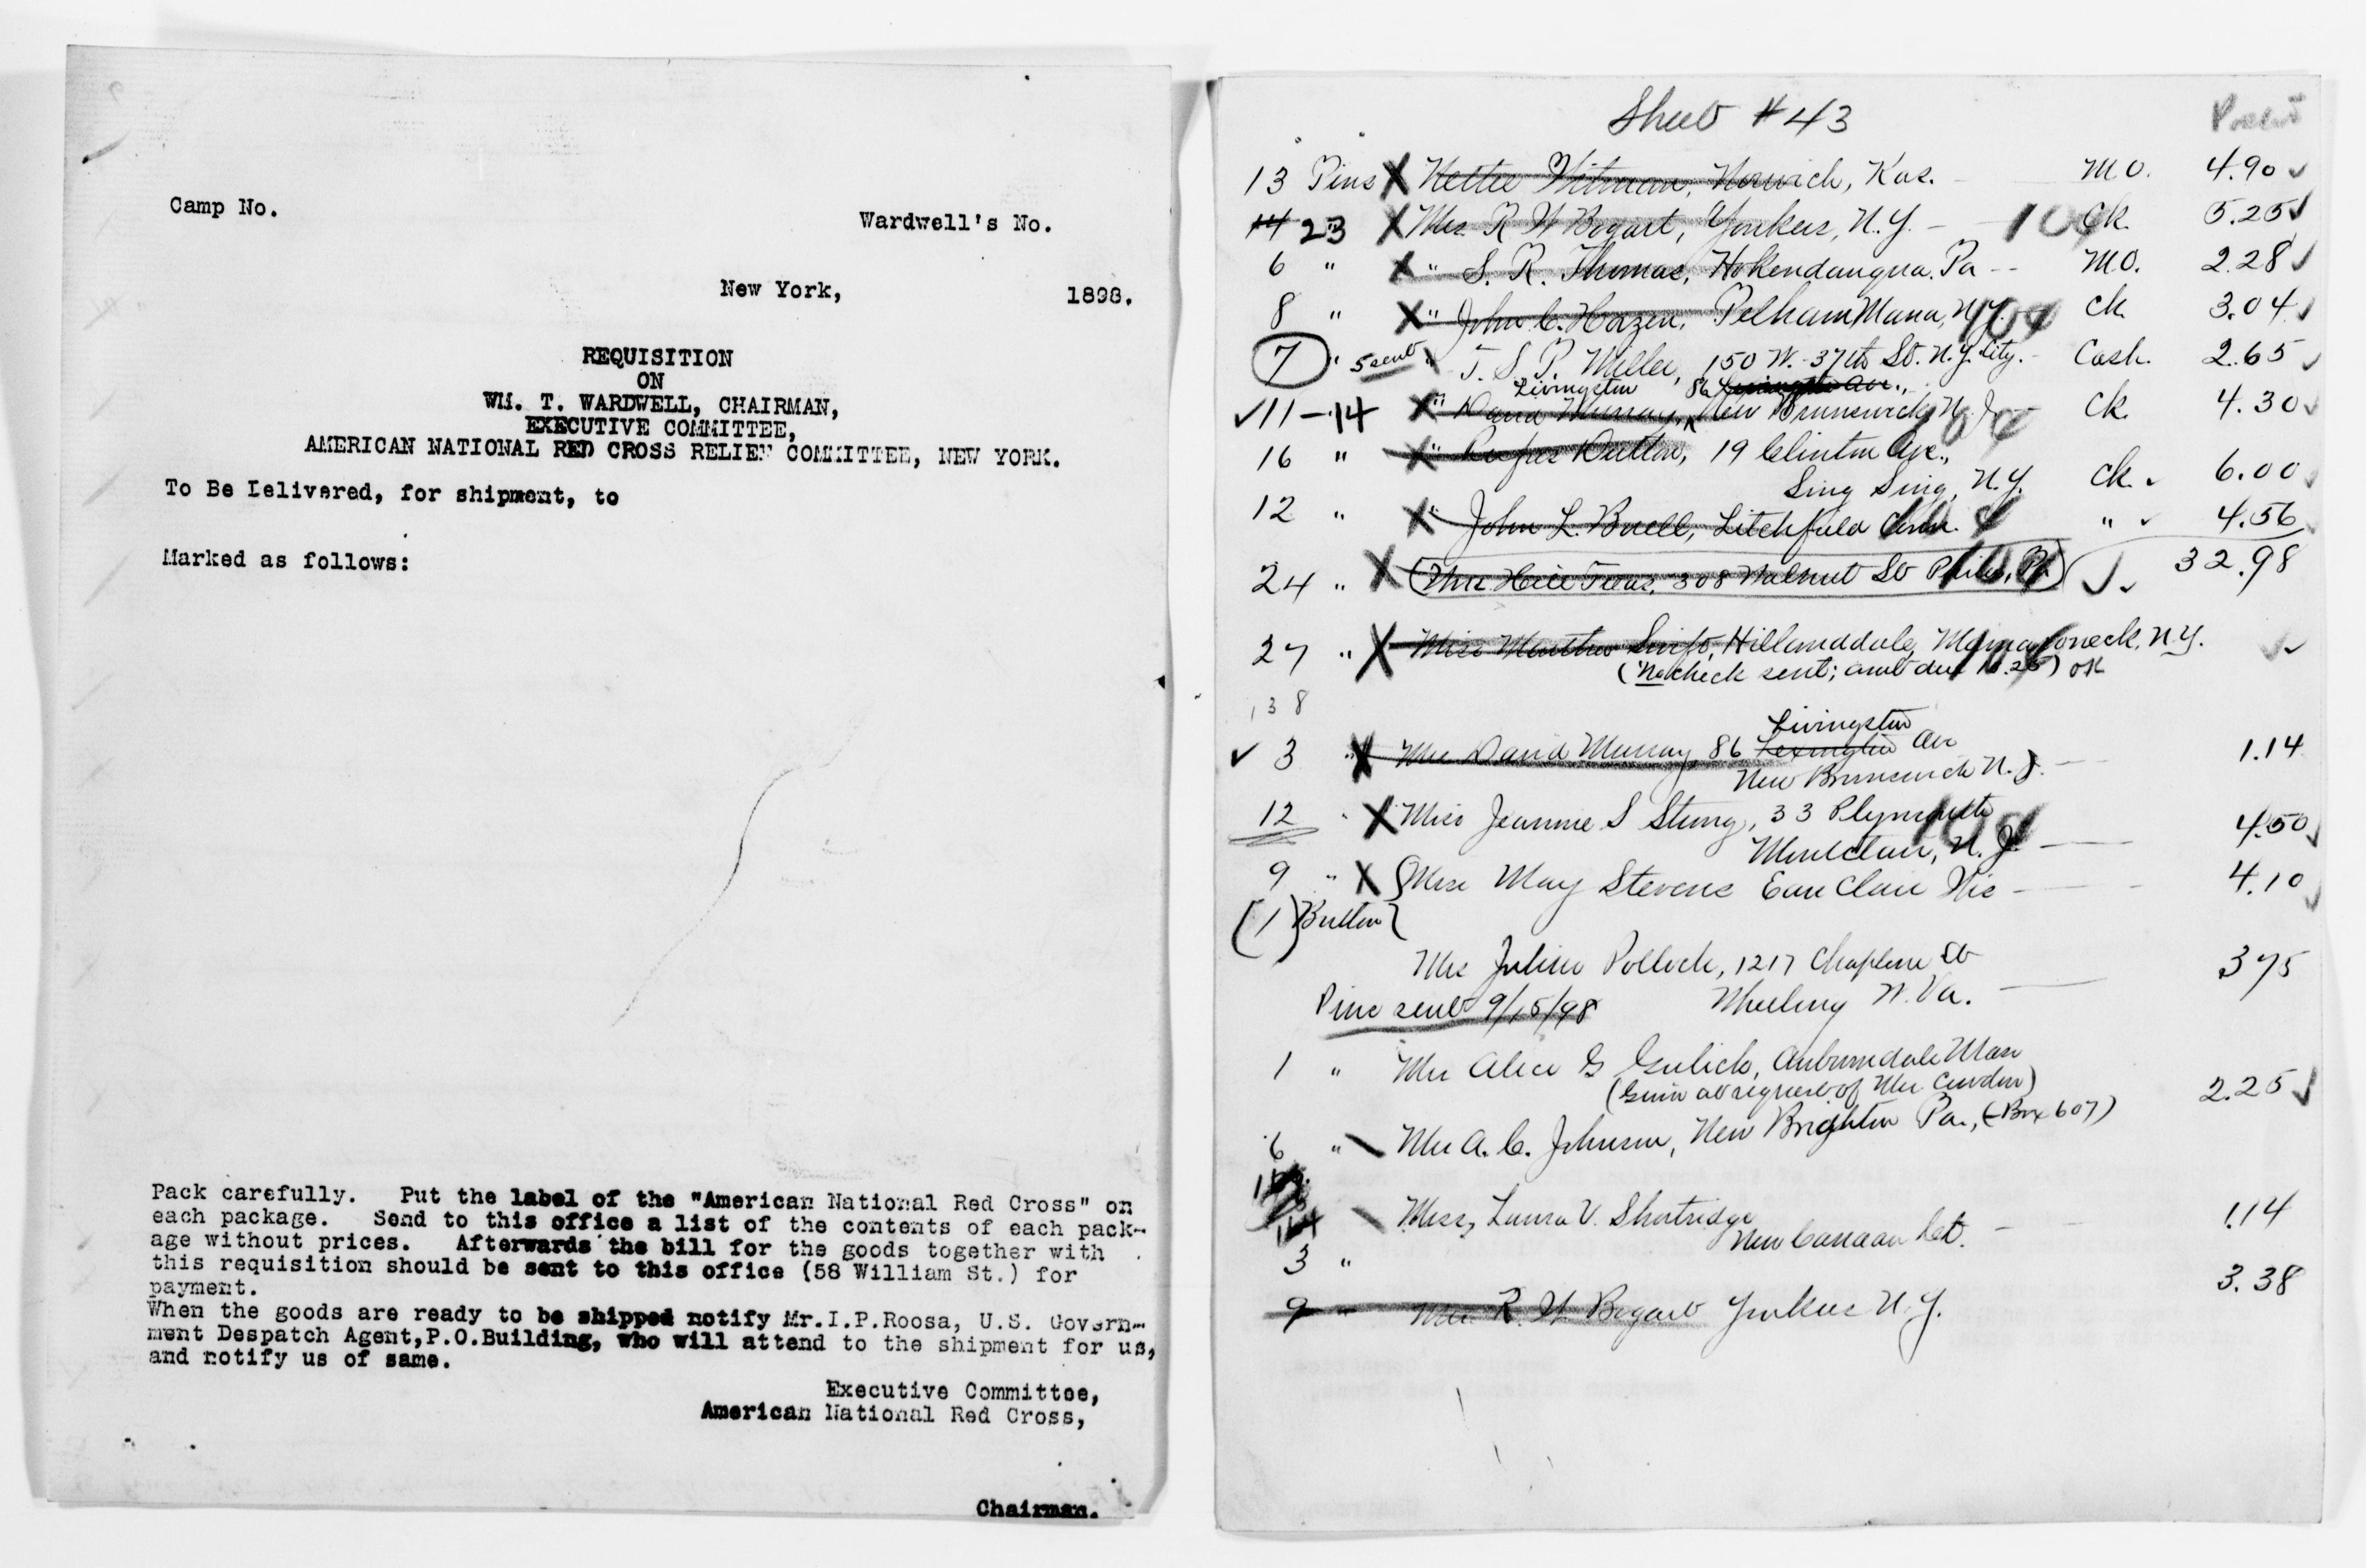 Camp No.
Wardwell's No.
New York, 1898.
REQUISITION
ON
WM. T. WARDWELL, CHAIRMAN,
EXECUTIVE COMMITTEE,
AMERICAN NATIONAL RED CROSS RELIEF COMMITTEE, NEW YORK.
To Be Delivered, for shipment, to
Marked as follows:
Pack carefully. Put the label of the "American National Red Cross" on
each package. Send to this office a list of the contents of each pack-
age without prices. Afterwards the bill for the goods together with
this requisition should be sent to this office (58 William St.) for
payment.
When the goods are ready to be shipped notify Mr.I.P.Roosa, U.S. Govern-
ment Despatch Agent,P.O.Building, who will attend to the shipment for us,
and notify us of same.
Executive Committee,
American National Red Cross,
Chairman.
Sheet #43
13 Pins X Nettie Norwich, Kas. M.O. 4.90
14 23 X Mrs. R W Bogart, Yonkers, N.Y. Ck. 5.25
6 " X " S. R. Thomas, Hokendauqua. Pa -- M.O. 2.28
8 " X " John C. Hazen, Pelham Manor, N.Y. Ck 3.04
7 " 5 sent " T. S. P. Miller, 150 W. 37th St. N.Y. City. - Cash. 2.65
Livingston 86 Lexington Av.,
11 - 14 X " David Murray, New Brunswick, N.J. Ck. 4.30
16 " X " Dutton, 19 Clinton Ave.,
Sing Sing, N.Y. Ck. 6.00
12 " X " John L. Buell, Litchfield Conn. " 4.56
32.98
24 " X (Mrs. Treas, 308 Walnut St Phila, Pa)
27 " X Miss Swift, Mamaroneck, N.Y.
(No check sent; amt due 10.26) OK
138
Livingston
3 " X Mrs David Murray, 86 Lexington Av
New Brunswick N.J. 1.14
12 " X Miss Jeannie S 33 Plymouth
Montclair, N.J. 4.50
9 " X Miss May Stevens Eau Claire Wis 4.10
(1) Button
Mrs Julius Pollock, 1217 Chapline St
Wheeling W. Va. 3 75
Pins sent 9/15/98
1 " Mrs Alice G Gulick, Auburndale Mass
(Given at request of Mrs Cowdin)
2.25
6 " Mrs A. C. Johnson, New Brighton Pa., (Box 607)
Miss, Laura V. Shortridge
New Canaan Ct. 1.14
3 "
9 " Mrs. R. W. Bogart Yonkers N.Y. 3.38